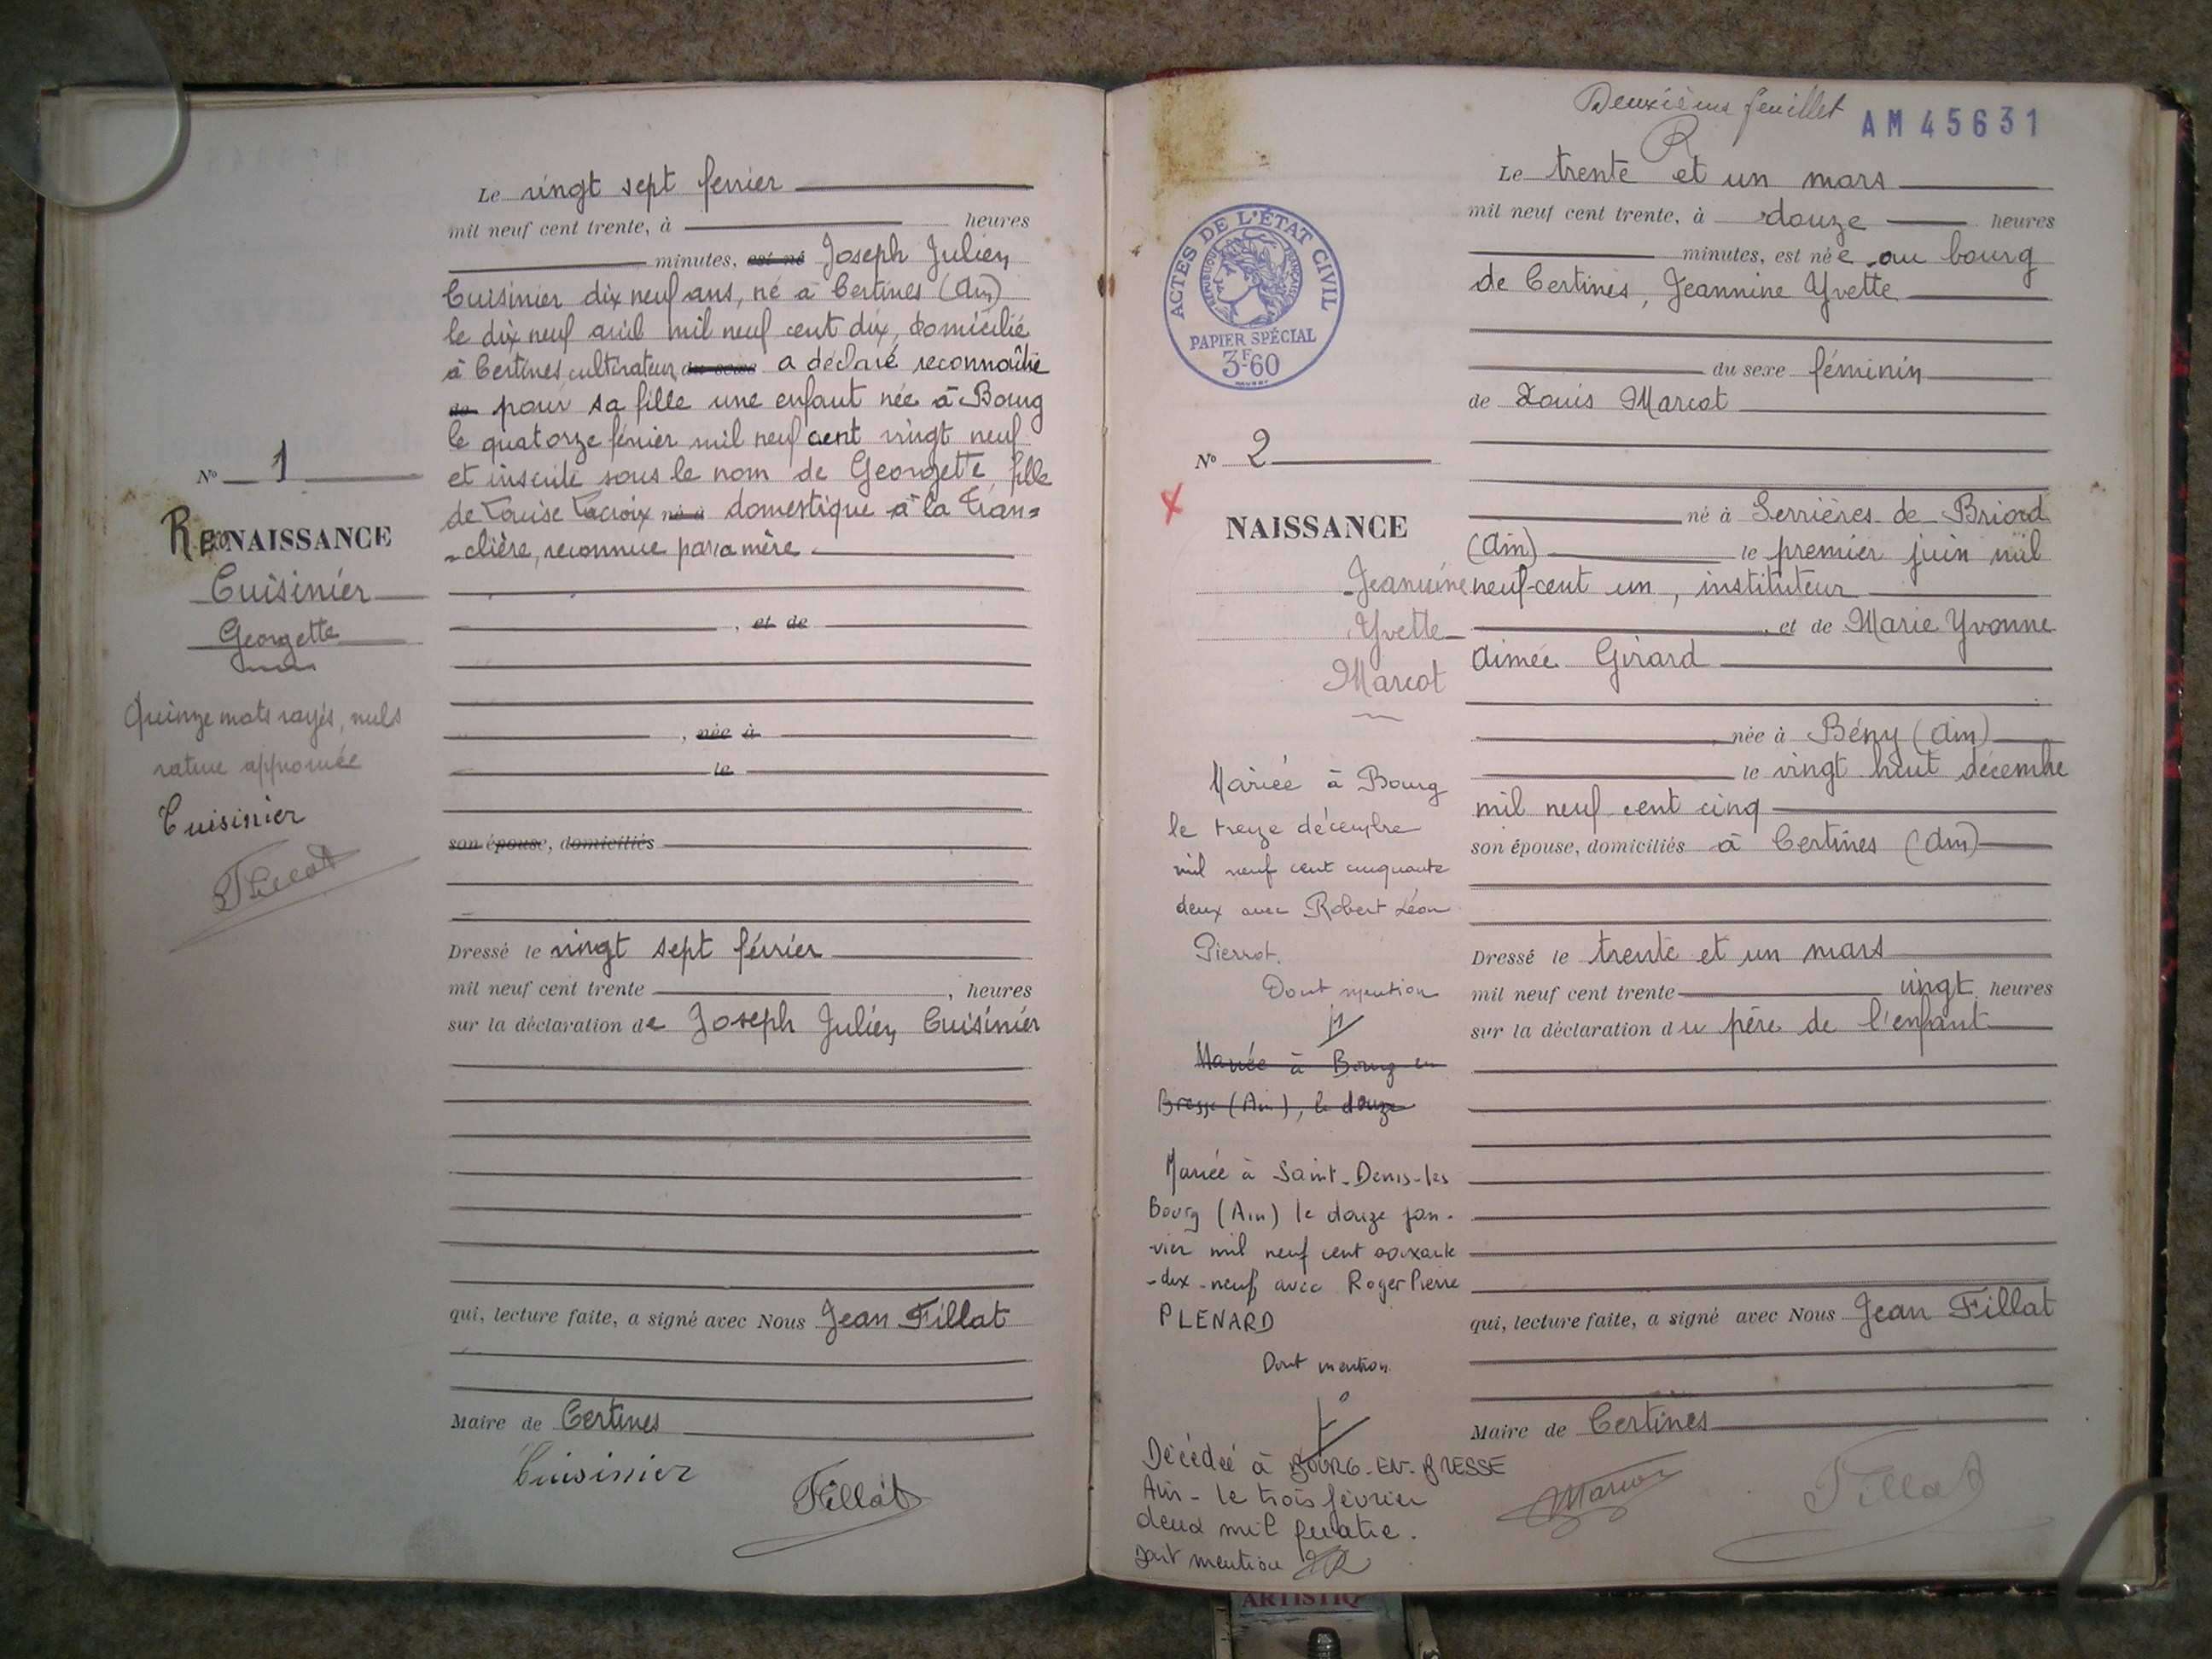 Le vingt sept fevrier
mil neuf cent trente, à heures
minutes, est né Joseph Julien
Cuisinier dix neuf ans, né à Certines (Ain)
le dix neuf avril mil neuf cent dix, domicilié
à Certines, cultivateur, du sexe a déclaré reconnaître
de pour sa fille une enfant née à Bourg
le quatorze févier mil neuf cent vingt neuf
et inscrite sous le nom de Georgette, fille
de Louise Lacroix né à domestique à la Tran=
-clière, reconnue par sa mère.
, et de
, née à
le
son épouse, domiciliés
Dressé le vingt sept février
mil neuf cent trente , heures
sur la déclaration de Joseph Julien Cuisinier
qui, lecture faite, a signé avec Nous Jean Fillat
Maire de Certines
Cuisinier
Fillat
N° 1
RecoNAISSANCE
Cuisinier
Georgette
Quinze mots rayés, nuls
rature approuvée
Cuisinier
Fillat
Deuxième feuillet
R
AM 45631
ACTES DE L'ÉTAT CIVIL
RÉPUBLIQUE FRANÇAISE
PAPIER SPÉCIAL
3F60
Le trente et un mars
mil neuf cent trente, à douze heures
minutes, est née au bourg
de Certines, Jeannine Yvette
du sexe féminin
de Louis Marcot
né à Serrières de Briord
(Ain) le premier juin mil
neuf-cent un, instituteur
, et de Marie Yvonne
Aimée Girard
née à Bény (Ain)
le vingt huit décembre
mil neuf cent cinq
son épouse, domiciliés à Certines (Ain)
Dressé le trente et un mars
mil neuf cent trente vingt heures
sur la déclaration du père de l'enfant
qui, lecture faite, a signé avec Nous Jean Fillat
Maire de Certines
Marcot
Fillat
N° 2
NAISSANCE
Jeannine
Yvette
Marcot
Mariée à Bourg
le treize décembre
mil neuf cent cinquante
deux avec Robert Léon
Pierrot.
Dont mention
Mariée à Bourg en
Bresse (Ain), le douze
Mariée à Saint-Denis-les
Bourg (Ain) le douze jan-
vier mil neuf cent soixante
-dix-neuf avec Roger Pierre
PLENARD
Dont mention
Décédée à BOURG-EN-BRESSE
Ain - le trois février
deux mil quatre.
Dont mention
ARTISTIQ